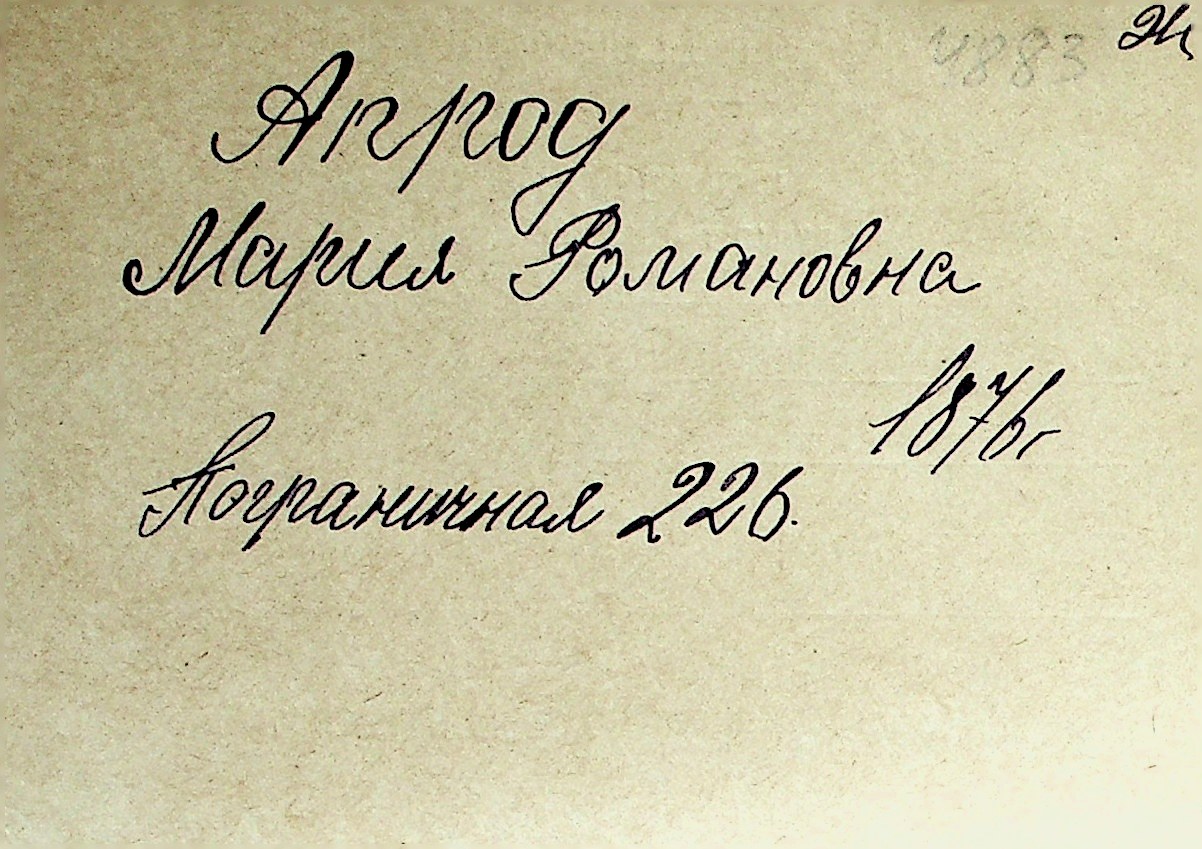 4883
Апрод
Мария Романовна
1876г
Пограничная 226.